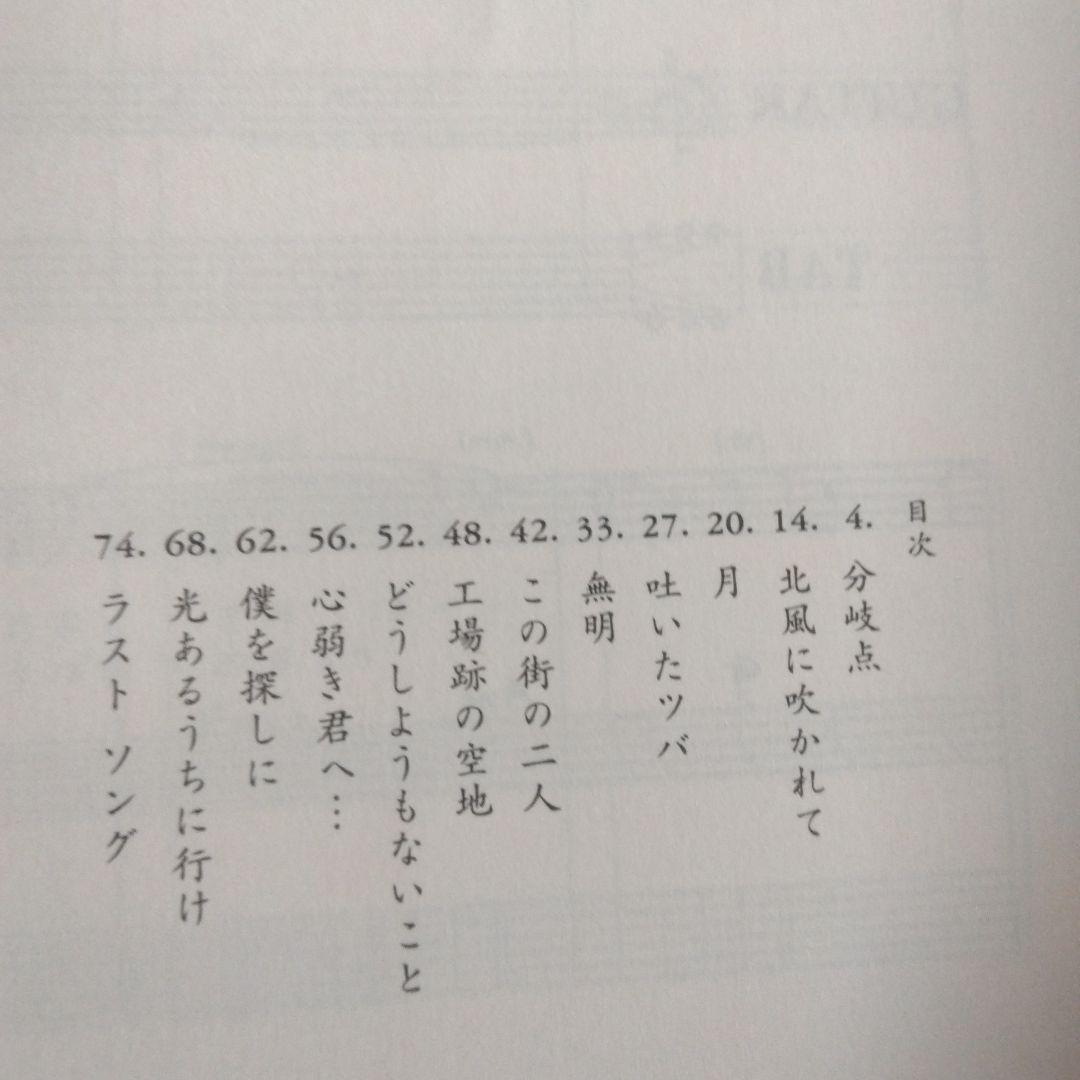 目次
4. 分岐点
14. 北風に吹かれて
20. 月
27. 吐いたツバ
33. 無明
42. この街の二人
48. 工場跡の空地
52. どうしようもないこと
56. 心弱き君へ…
62. 僕を探しに
68. 光あるうちに行け
74. ラスト ソング
GUITAR
TAB